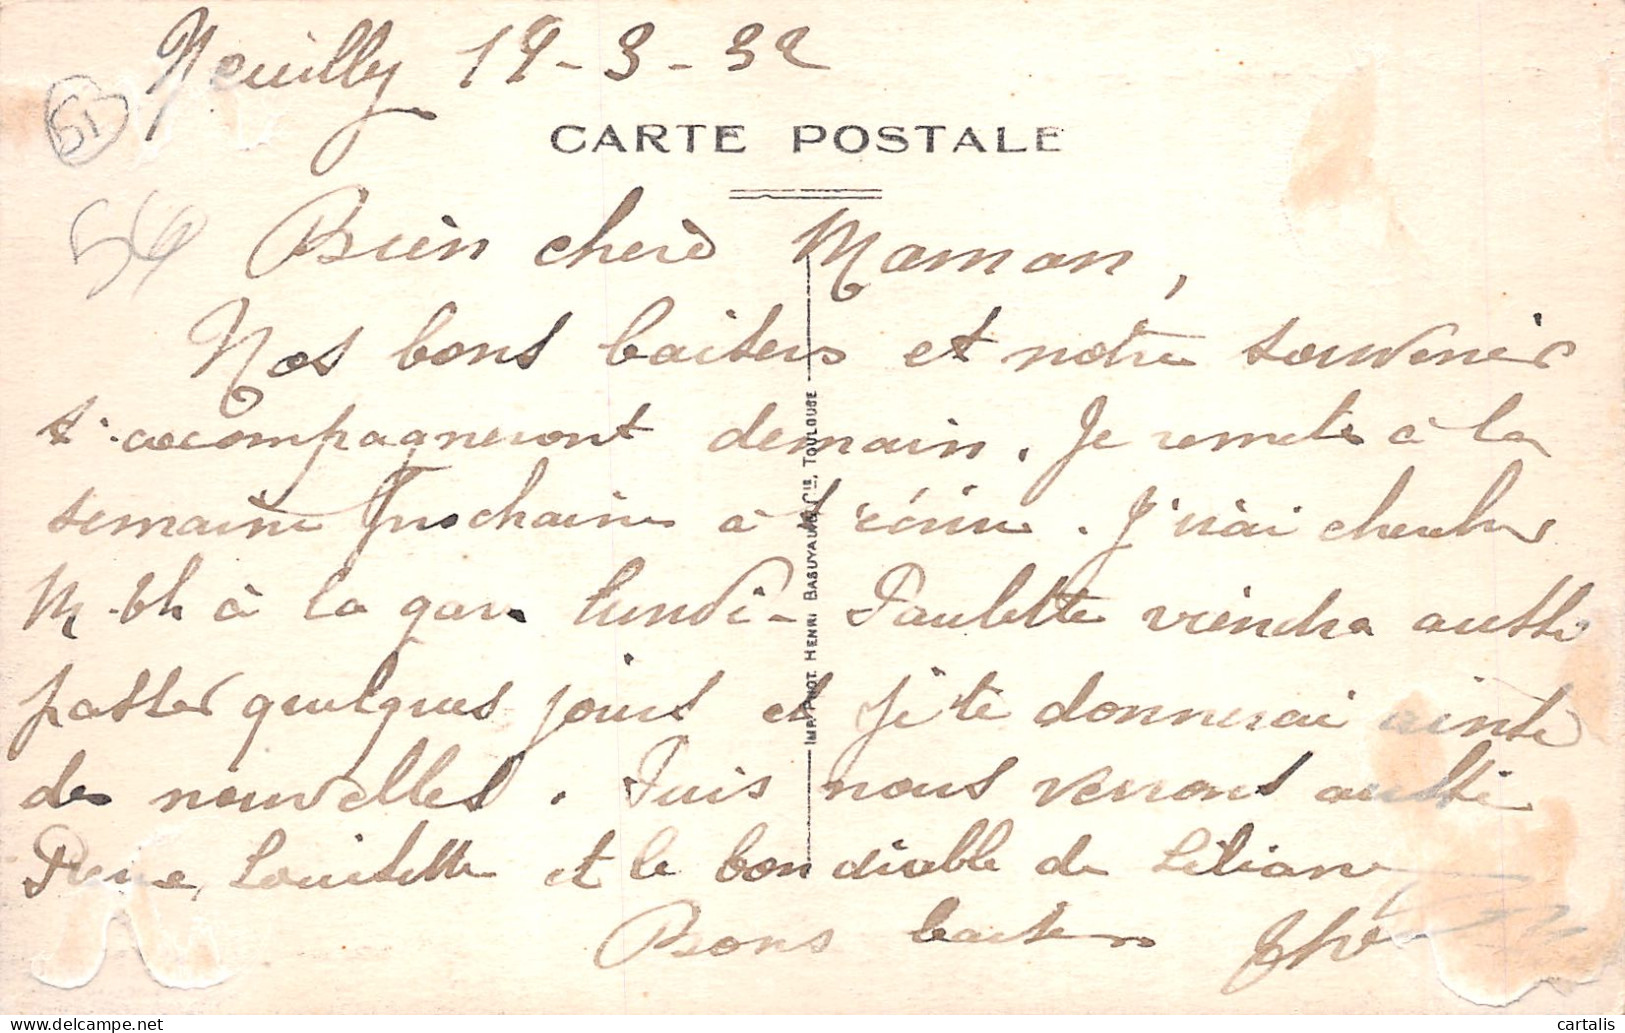 Neuilly 19-3-32
51
CARTE POSTALE
56
Bien chère Maman,
Nos bons baisers et notre souvenir
t'accompagneront demain. Je remets à la
semaine prochaine à t'écrire. J'irai chercher
M. à la gare lundi - Paulette viendra aussi
passer quelques jours et je te donnerai ainsi
des nouvelles. Puis nous verrons aussi
Pierre, Louisette et le bon diable de Liliane
Bons baisers
IMP. PHOT. HENRI BASUYAU & Cie, TOULOUSE
cartalis